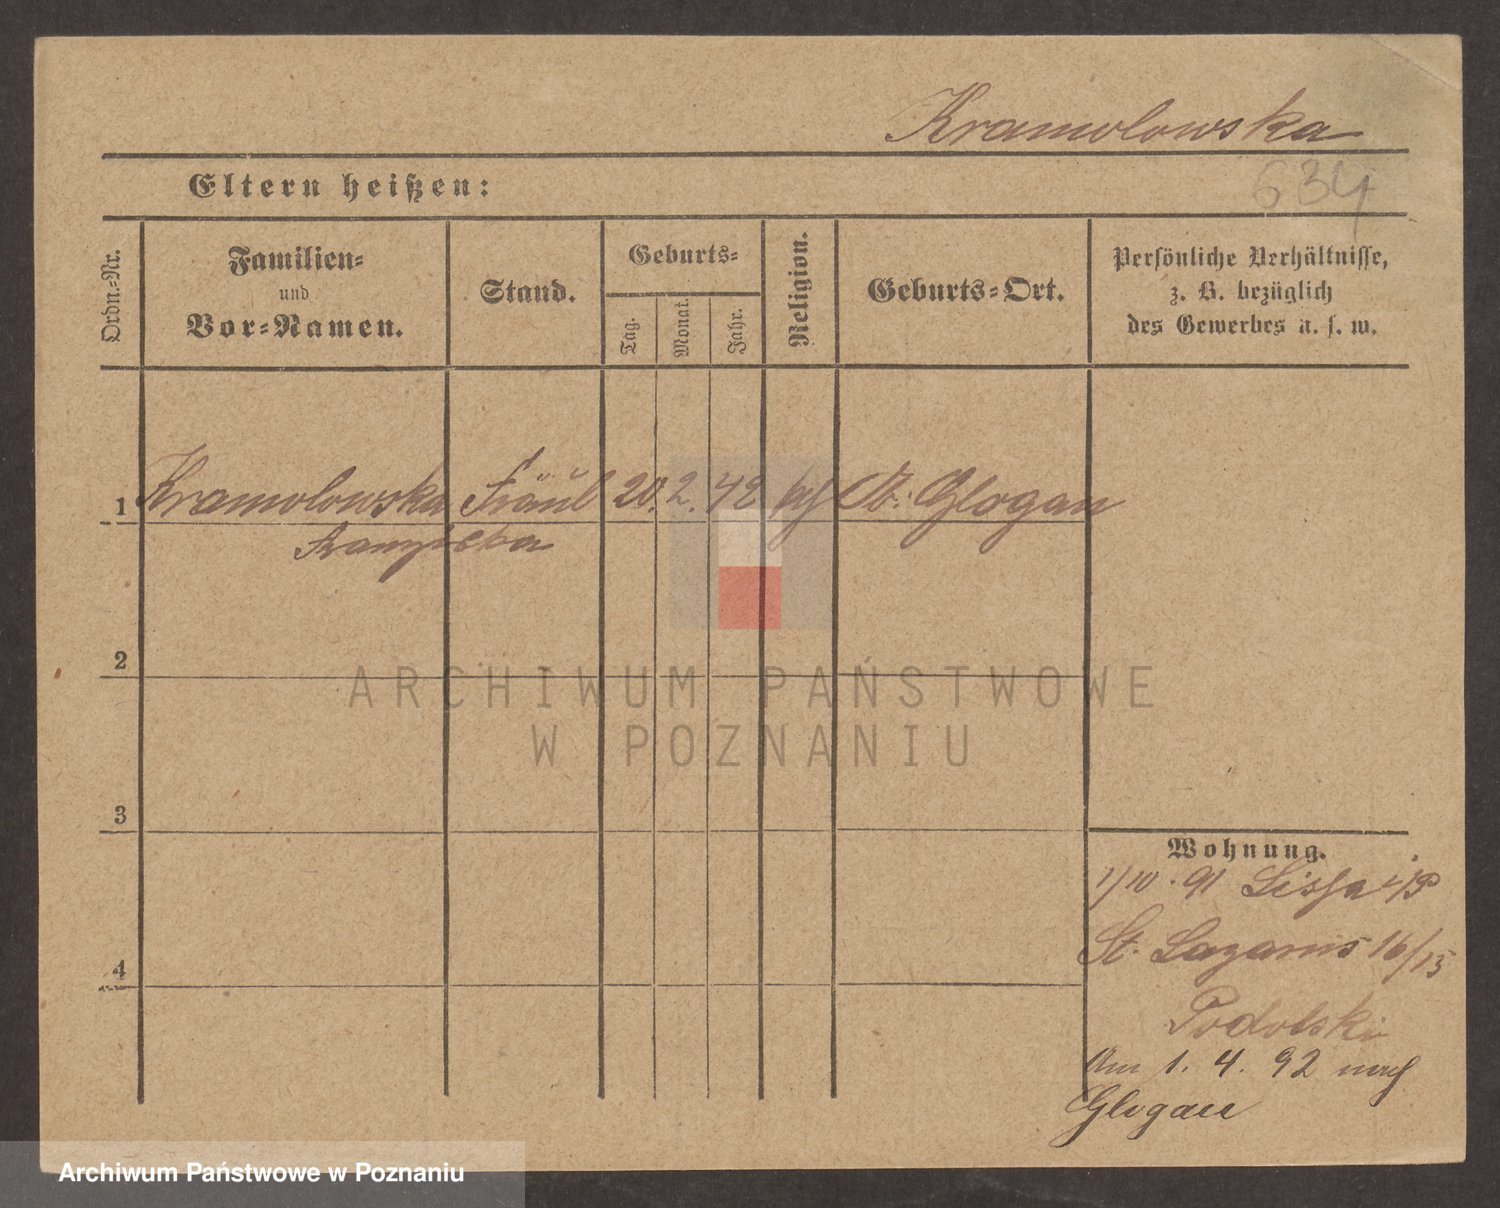 Kramolowska
634
Eltern heißen:
Ordn.-Nr.
Familien-
und
Vor-Namen.
Stand.
Geburts-
Tag.
Monat.
Jahr.
Religion.
Geburts-Ort.
Persönliche Verhältnisse,
z. B. bezüglich
des Gewerbes u. s. w.
1 Kramolowska Fräul 20. 2. 42 Glogau
Franziska
2
ARCHIWUM PAŃSTWOWE
W POZNANIU
3
Wohnung.
1/10. 91 Lissa i/P
St. Lazarus 16/15
4
Podolski
Am 1. 4. 92 nach
Glogau
Archiwum Państwowe w Poznaniu